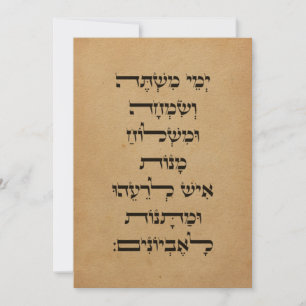 יְמֵי מִשְׁתֶּה
וְשִׂמְחָה
וּמִשְׁלוֹחַ
מָנוֹת
אִישׁ לְרֵעֵהוּ
וּמַתָּנוֹת
לָאֶבְיוֹנִים׃